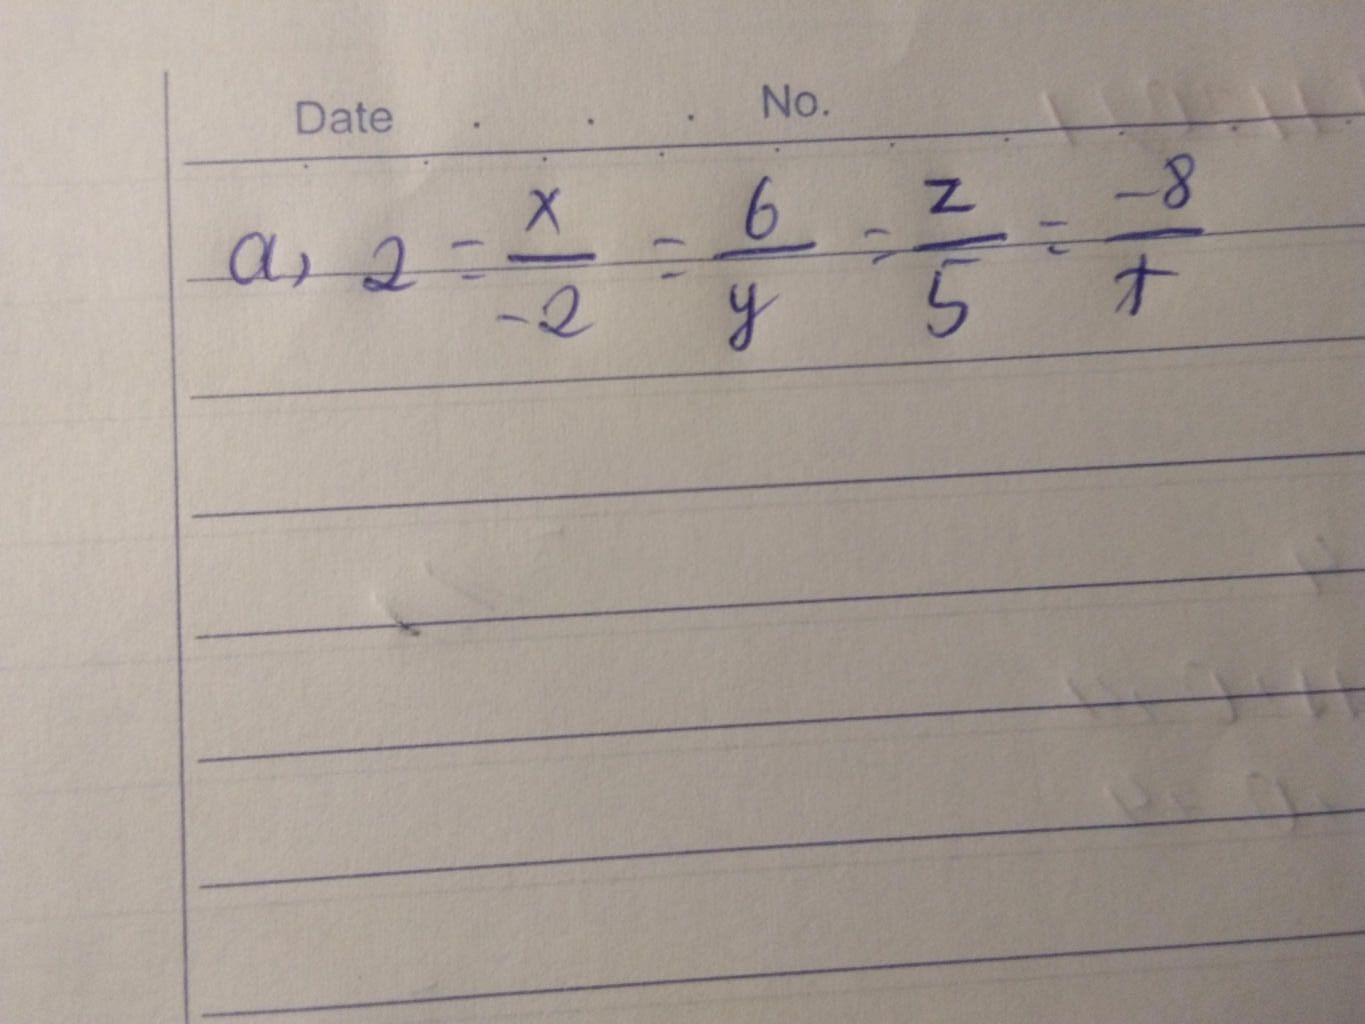 Date . . . No.
a, 2 = x/-2 = 6/y = z/5 = -8/t